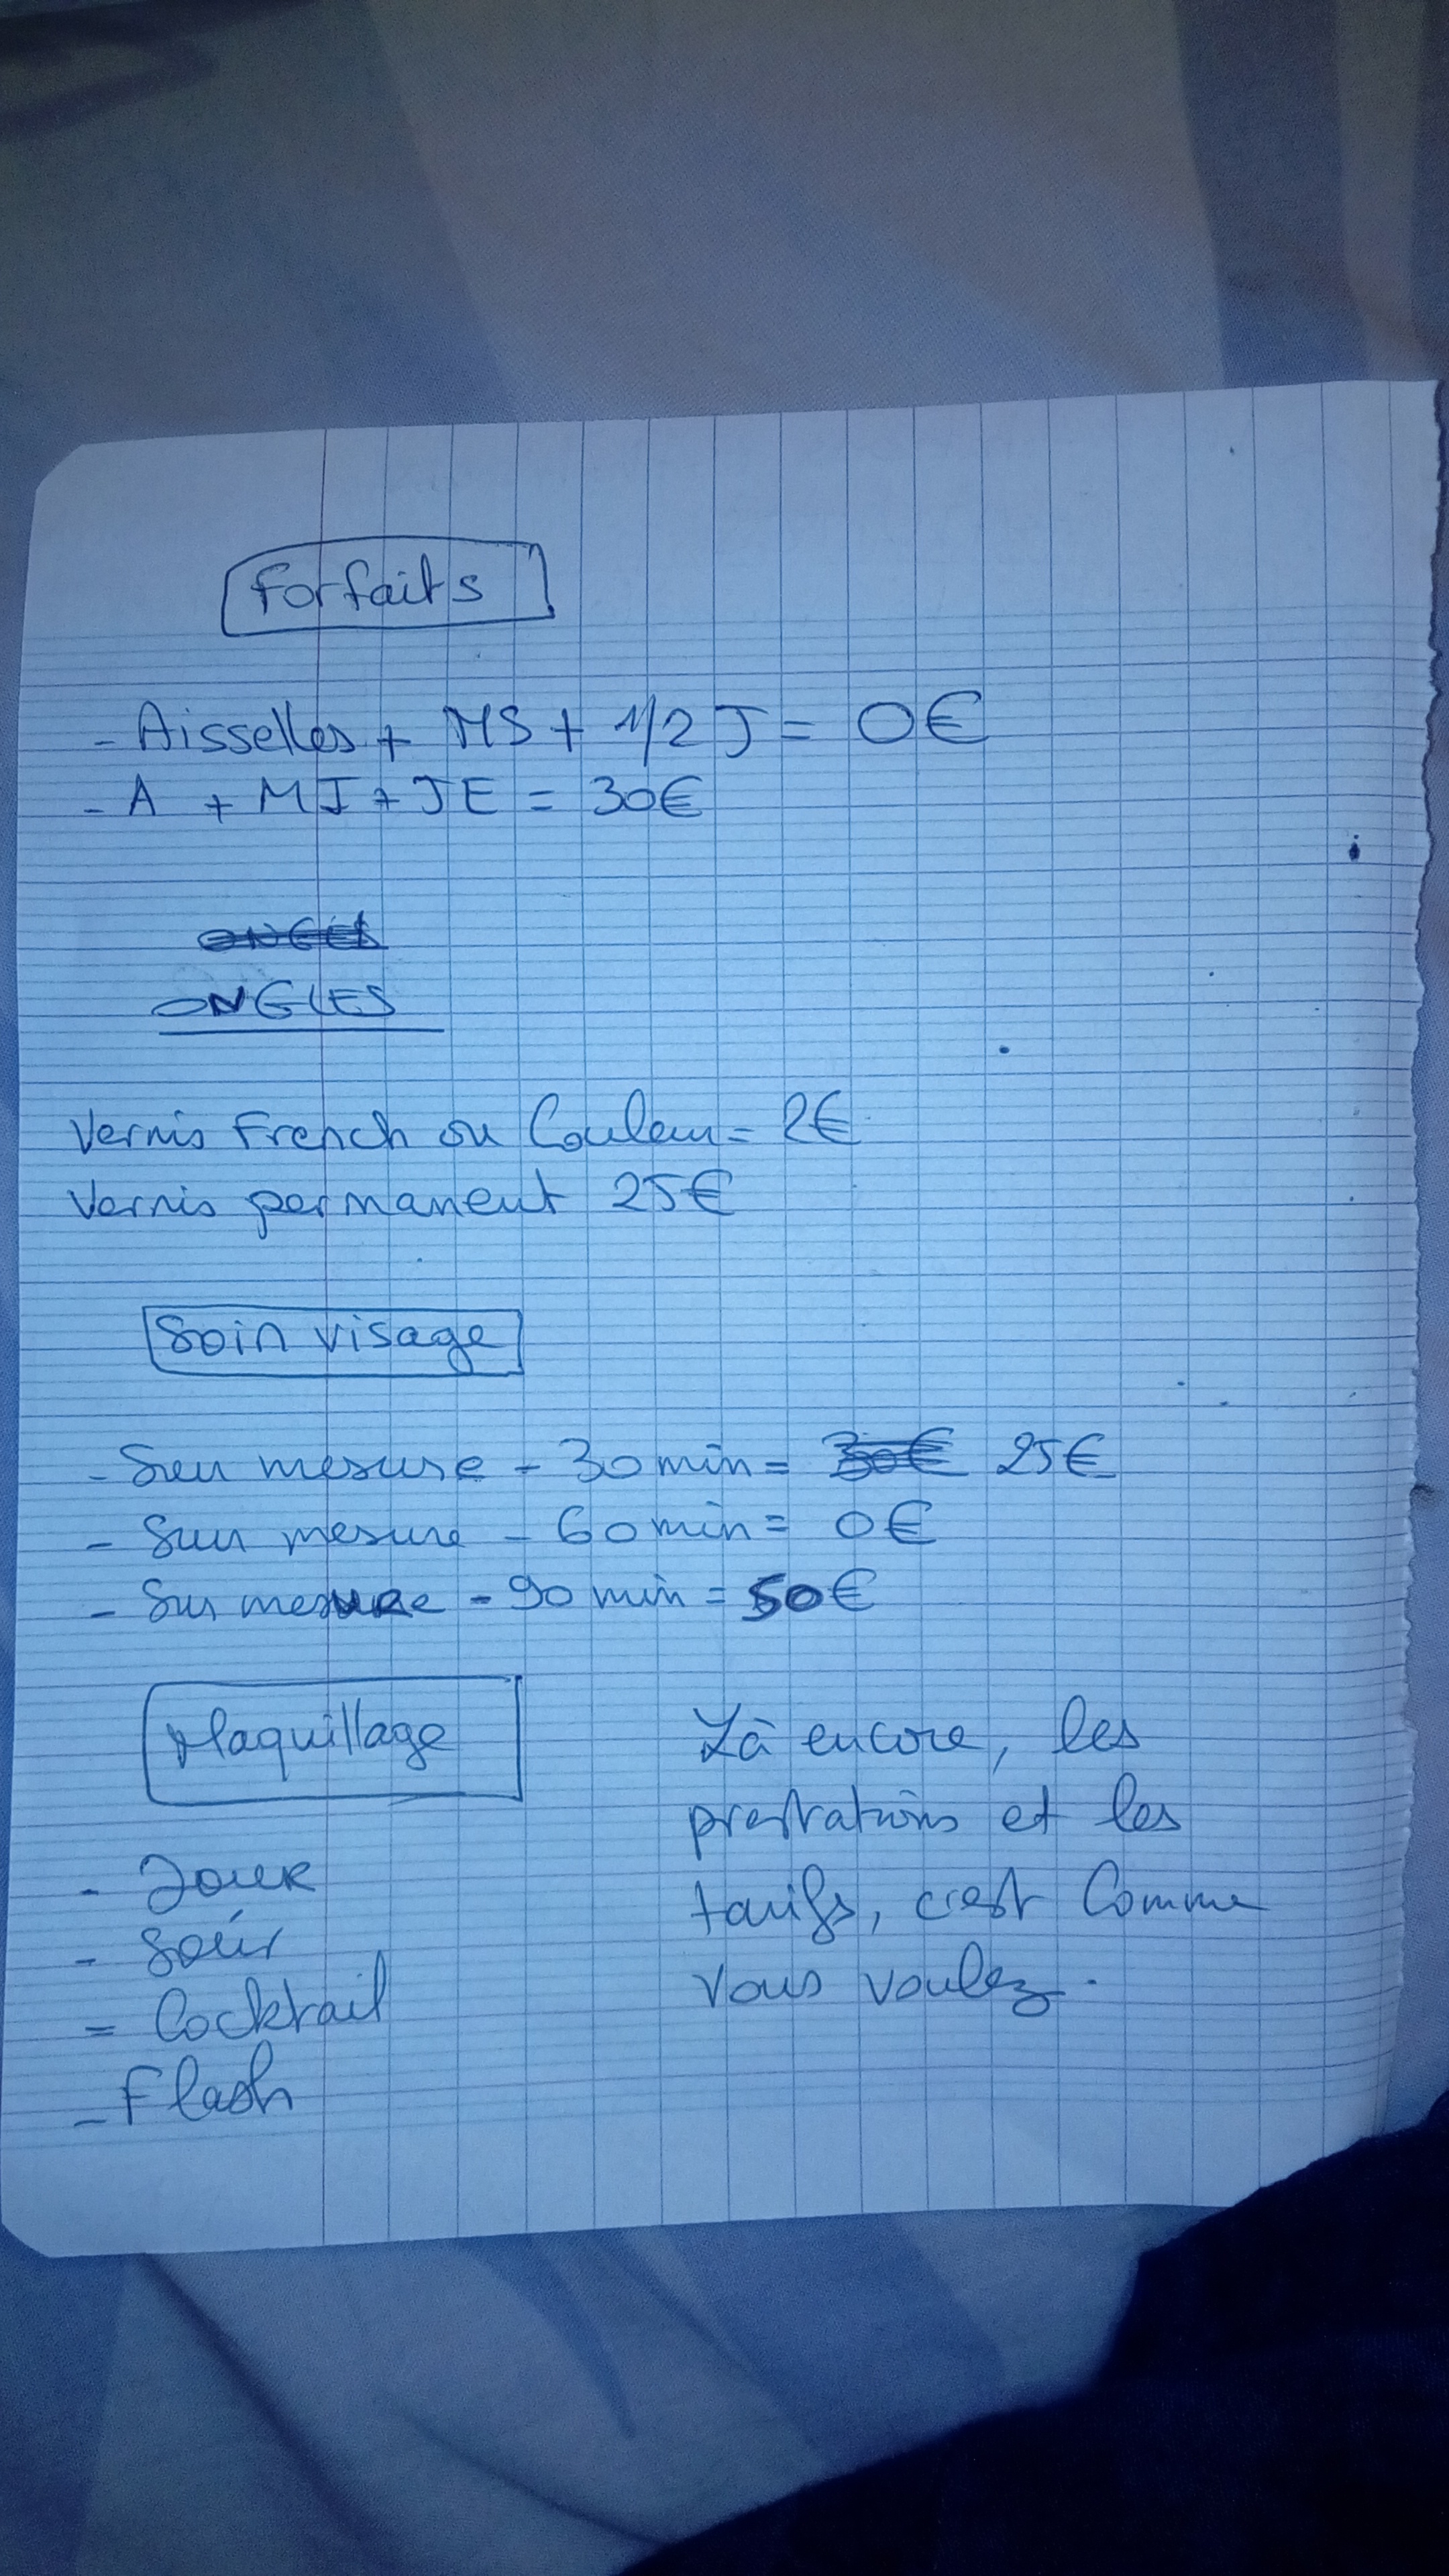 Forfaits
- Aisselles + MS + 1/2 J = 0€
- A + MI + JE = 30€
ONGLES
Vernis French ou Couleur = 2€
Vernis permanent 25€
Soin visage
- Sur mesure - 30 min = 30€ 25€
- Sur mesure - 60 min = 0€
- Sur mesure - 90 min = 50€
Maquillage
- Jour
- Soir
- Cocktail
- Flash
Là encore, les
prestations et les
tarifs, c'est Comme
vous voulez.